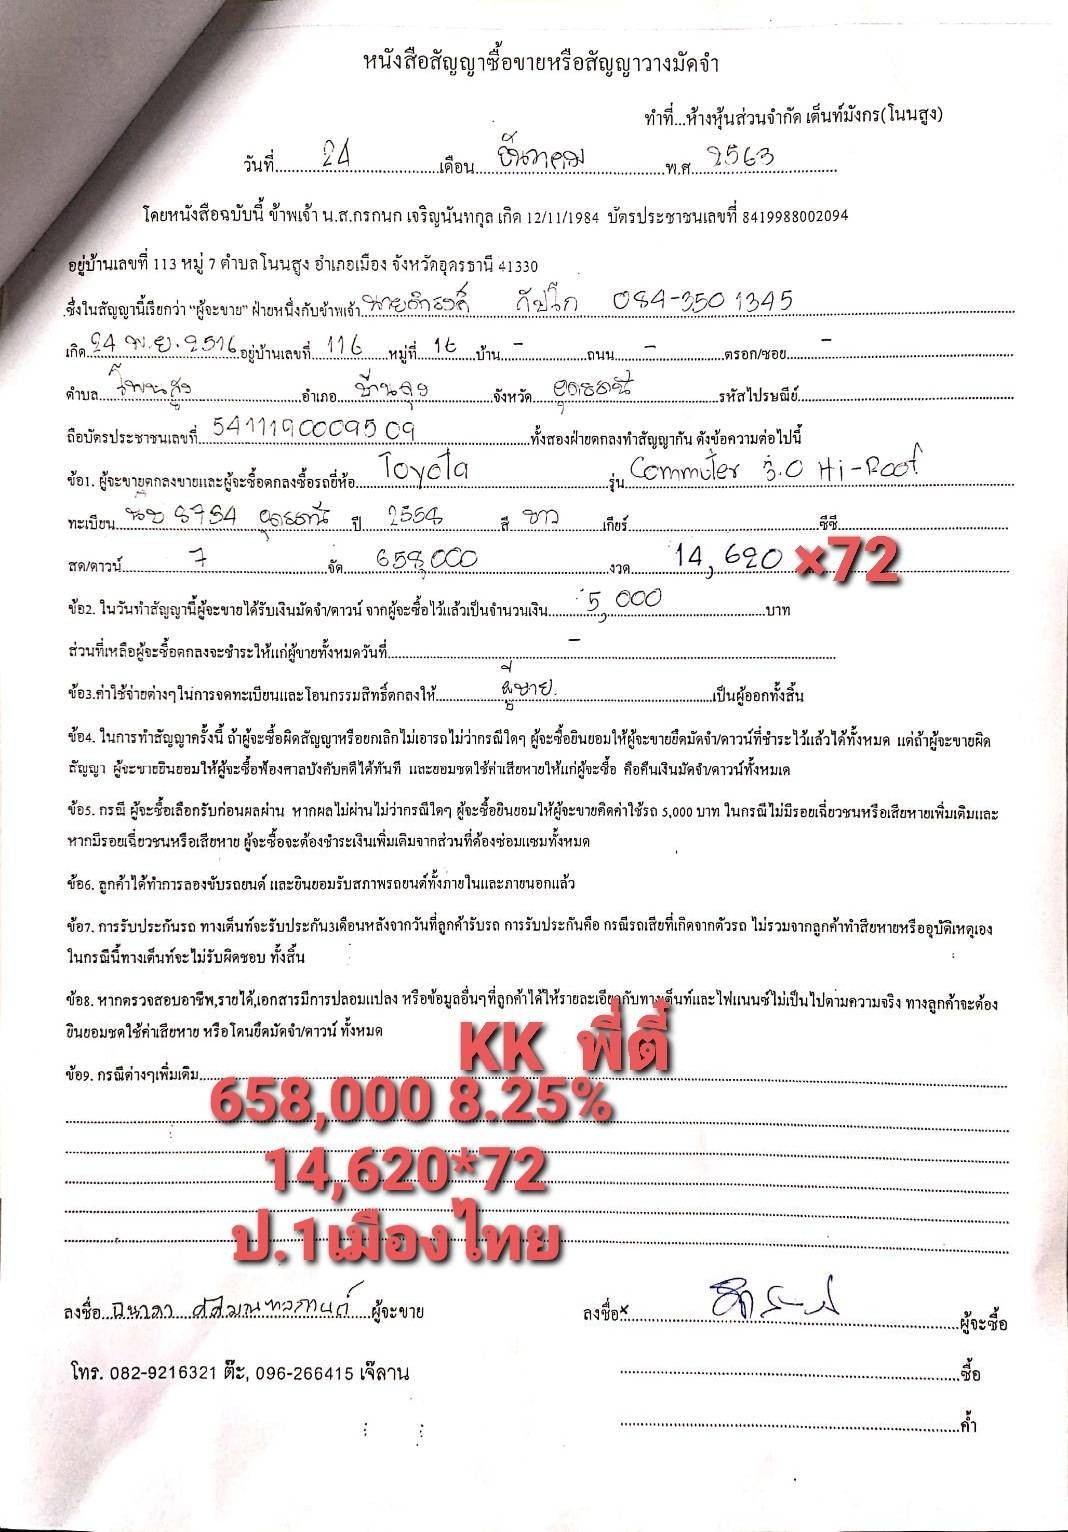 หนังสือสัญญาซื้อขายหรือสัญญาวางมัดจำ
ทำที่...ห้างหุ้นส่วนจำกัด เต็นท์มังกร(โนนสูง)
วันที่ 24 เดือน ธันวาคม พ.ศ. 2563
โดยหนังสือฉบับนี้ ข้าพเจ้า น.ส.กรกนก เจริญนันทกุล เกิด 12/11/1984 บัตรประชาชนเลขที่ 8419988002094
อยู่บ้านเลขที่ 113 หมู่ 7 ตำบลโนนสูง อำเภอเมือง จังหวัดอุดรธานี 41330
ซึ่งในสัญญานี้เรียกว่า "ผู้จะขาย" ฝ่ายหนึ่งกับข้าพเจ้า 084-350 1345
เกิด 24 พ.ย. 2516 อยู่บ้านเลขที่ 116 หมู่ที่ 16 บ้าน - ถนน - ตรอก/ซอย -
ตำบล อำเภอ จังหวัด อุดรธานี รหัสไปรษณีย์
ถือบัตรประชาชนเลขที่ 5411190009509 ทั้งสองฝ่ายตกลงทำสัญญากัน ดังข้อความต่อไปนี้
ข้อ1. ผู้จะขายตกลงขายและผู้จะซื้อตกลงซื้อรถยี่ห้อ Toyota รุ่น Commuter 3.0 Hi-Roof
ทะเบียน 8784 อุดรธานี ปี 2558 สี ขาว เกียร์ ซีซี
สด/ดาวน์ 7 จัด 658,000 งวด 14,620 ×72
ข้อ2. ในวันทำสัญญานี้ผู้จะขายได้รับเงินมัดจำ/ดาวน์ จากผู้จะซื้อไว้แล้วเป็นจำนวนเงิน 5,000 บาท
ส่วนที่เหลือผู้จะซื้อตกลงจะชำระให้แก่ผู้ขายทั้งหมดวันที่ -
ข้อ3.ค่าใช้จ่ายต่างๆในการจดทะเบียนและโอนกรรมสิทธิ์ตกลงให้ ผู้ขาย เป็นผู้ออกทั้งสิ้น
ข้อ4. ในการทำสัญญาครั้งนี้ ถ้าผู้จะซื้อผิดสัญญาหรือยกเลิกไม่เอารถไม่ว่ากรณีใดๆ ผู้จะซื้อยินยอมให้ผู้จะขายยึดมัดจำ/ดาวน์ที่ชำระไว้แล้วได้ทั้งหมด แต่ถ้าผู้จะขายผิด
สัญญา ผู้จะขายยินยอมให้ผู้จะซื้อฟ้องศาลบังคับคดีได้ทันที และยอมชดใช้ค่าเสียหายให้แก่ผู้จะซื้อ คือคืนเงินมัดจำ/ดาวน์ทั้งหมด
ข้อ5. กรณี ผู้จะซื้อเลือกรับก่อนผลผ่าน หากผลไม่ผ่านไม่ว่ากรณีใดๆ ผู้จะซื้อยินยอมให้ผู้จะขายคิดค่าใช้รถ 5,000 บาท ในกรณีไม่มีรอยเฉี่ยวชนหรือเสียหายเพิ่มเติมและ
หากมีรอยเฉี่ยวชนหรือเสียหาย ผู้จะซื้อจะต้องชำระเงินเพิ่มเติมจากส่วนที่ต้องซ่อมแซมทั้งหมด
ข้อ6. ลูกค้าได้ทำการลองขับรถยนต์ และยินยอมรับสภาพรถยนต์ทั้งภายในและภายนอกแล้ว
ข้อ7. การรับประกันรถ ทางเต็นท์จะรับประกัน3เดือนหลังจากวันที่ลูกค้ารับรถ การรับประกันคือ กรณีรถเสียที่เกิดจากตัวรถ ไม่รวมจากลูกค้าทำเสียหายหรืออุบัติเหตุเอง
ในกรณีนี้ทางเต็นท์จะไม่รับผิดชอบ ทั้งสิ้น
ข้อ8. หากตรวจสอบอาชีพ,รายได้,เอกสารมีการปลอมแปลง หรือข้อมูลอื่นๆที่ลูกค้าได้ให้รายละเอียดกับทางเต็นท์และไฟแนนซ์ไม่เป็นไปตามความจริง ทางลูกค้าจะต้อง
ยินยอมชดใช้ค่าเสียหาย หรือโดนยึดมัดจำ/ดาวน์ ทั้งหมด
KK พี่ตี๋
ข้อ9. กรณีต่างๆเพิ่มเติม
658,000 8.25%
14,620*72
ป.1เมืองไทย
ลงชื่อ ผู้จะขาย
ลงชื่อx ผู้จะซื้อ
โทร. 082-9216321 ต๊ะ, 096-266415 เจ๊ลาน
ซื้อ
ค้ำ